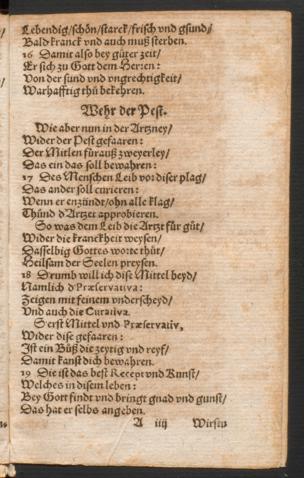 Lebendig/schön/starck/frisch vnd gsund/
Bald kranck vnd auch muß sterben.
16 Damit also bey güter zeit/
Er sich zu Gott dem Herzen:
Von der sund vnd vngrechtigkeit/
Warhafftig thü bekehren.
Wehr der Pest.
Wie aber nun in der Artzney/
Wider der Pest gefaaren:
Der Mitlen fürauß zweyerley/
Das ein das soll bewahren:
17 Des Menschen Leib vor diser plag/
Das ander soll curieren:
Wenn er enzündt/ohn alle klag/
Thünd d'Artzet approbieren.
So was dem Leib die Artzt für güt/
Wider die kranckheit weysen/
Dasselbig Gottes worte thüt/
Heilsam der Seelen preysen.
18 Drumb will ich dise Mittel beyd/
Namlich d'Præservativa:
Zeigen mit feinem vnderscheyd/
Vnd auch die Curativa.
S'erst Mittel vnd Præservativ,
Wider dise gefaaren:
Ist ein Büß die zeytig vnd reyf/
Damit kanst dich bewahren.
19 Die ist das best Recept vnd Kunst/
Welches in disem leben:
Bey Gott findt vnd bringt gnad vnd gunst/
Das hat er selbs angeben.
A iiij Wirstu